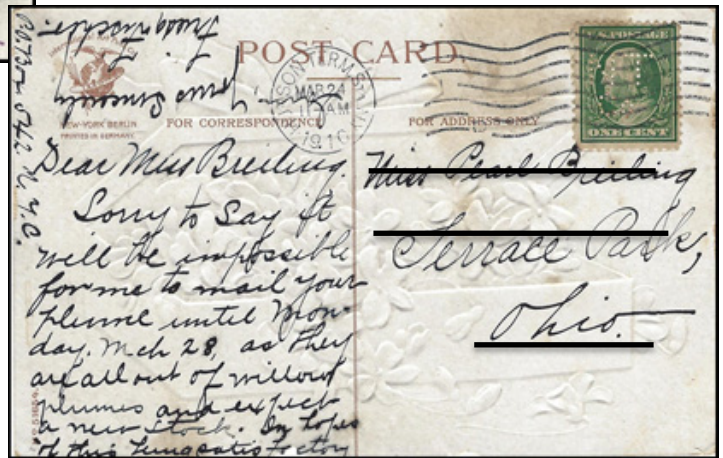 POST CARD
U.S. POSTAGE
ONE CENT
MAR 24
AM
1910
NEW-YORK BERLIN
PRINTED IN GERMANY
FOR CORRESPONDENCE
FOR ADDRESS ONLY
Dear Miss Breiling.
Sorry to Say it
will be impossible
for me to mail your
plume until Mon-
day. Mch 28, as they
are all out of willow
plumes and expect
a new stock. In hopes
of this being satisfactory
Yours Sincerely
N.Y.C.
Miss Pearl Breiling
Terrace Park,
Ohio.